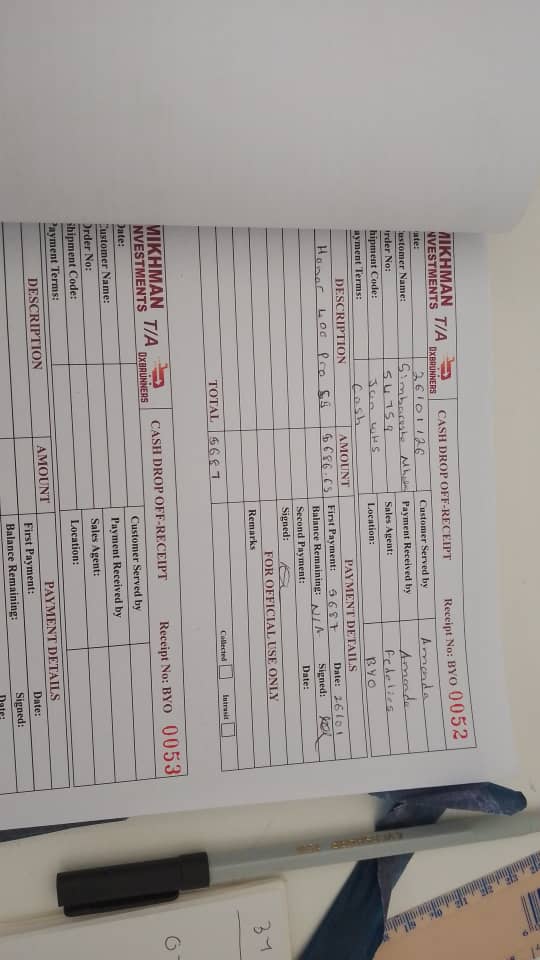 MIKHMAN T/A DXBRUNNERS CASH DROP OFF-RECEIPT Receipt No: BYO 0052
NVESTMENTS
ate: 26/01/26 Customer Served by Amanda
ustomer Name: Payment Received by Amanda
rder No: 54759 Sales Agent:
hipment Code: Jan wks Location: BYO
ayment Terms: Cash
DESCRIPTION AMOUNT PAYMENT DETAILS
Honor 400 Pro 5G $686.65 First Payment: $687 Date: 26/01
Balance Remaining: N/A Signed:
Second Payment: Date:
Signed:
FOR OFFICIAL USE ONLY
Remarks
TOTAL $687 Collected Intrasit
MIKHMAN T/A DXBRUNNERS CASH DROP OFF-RECEIPT Receipt No: BYO 0053
NVESTMENTS
Date: Customer Served by
Customer Name: Payment Received by
Order No: Sales Agent:
Shipment Code: Location:
Payment Terms:
DESCRIPTION AMOUNT PAYMENT DETAILS
First Payment: Date:
Balance Remaining: Signed:
Date: